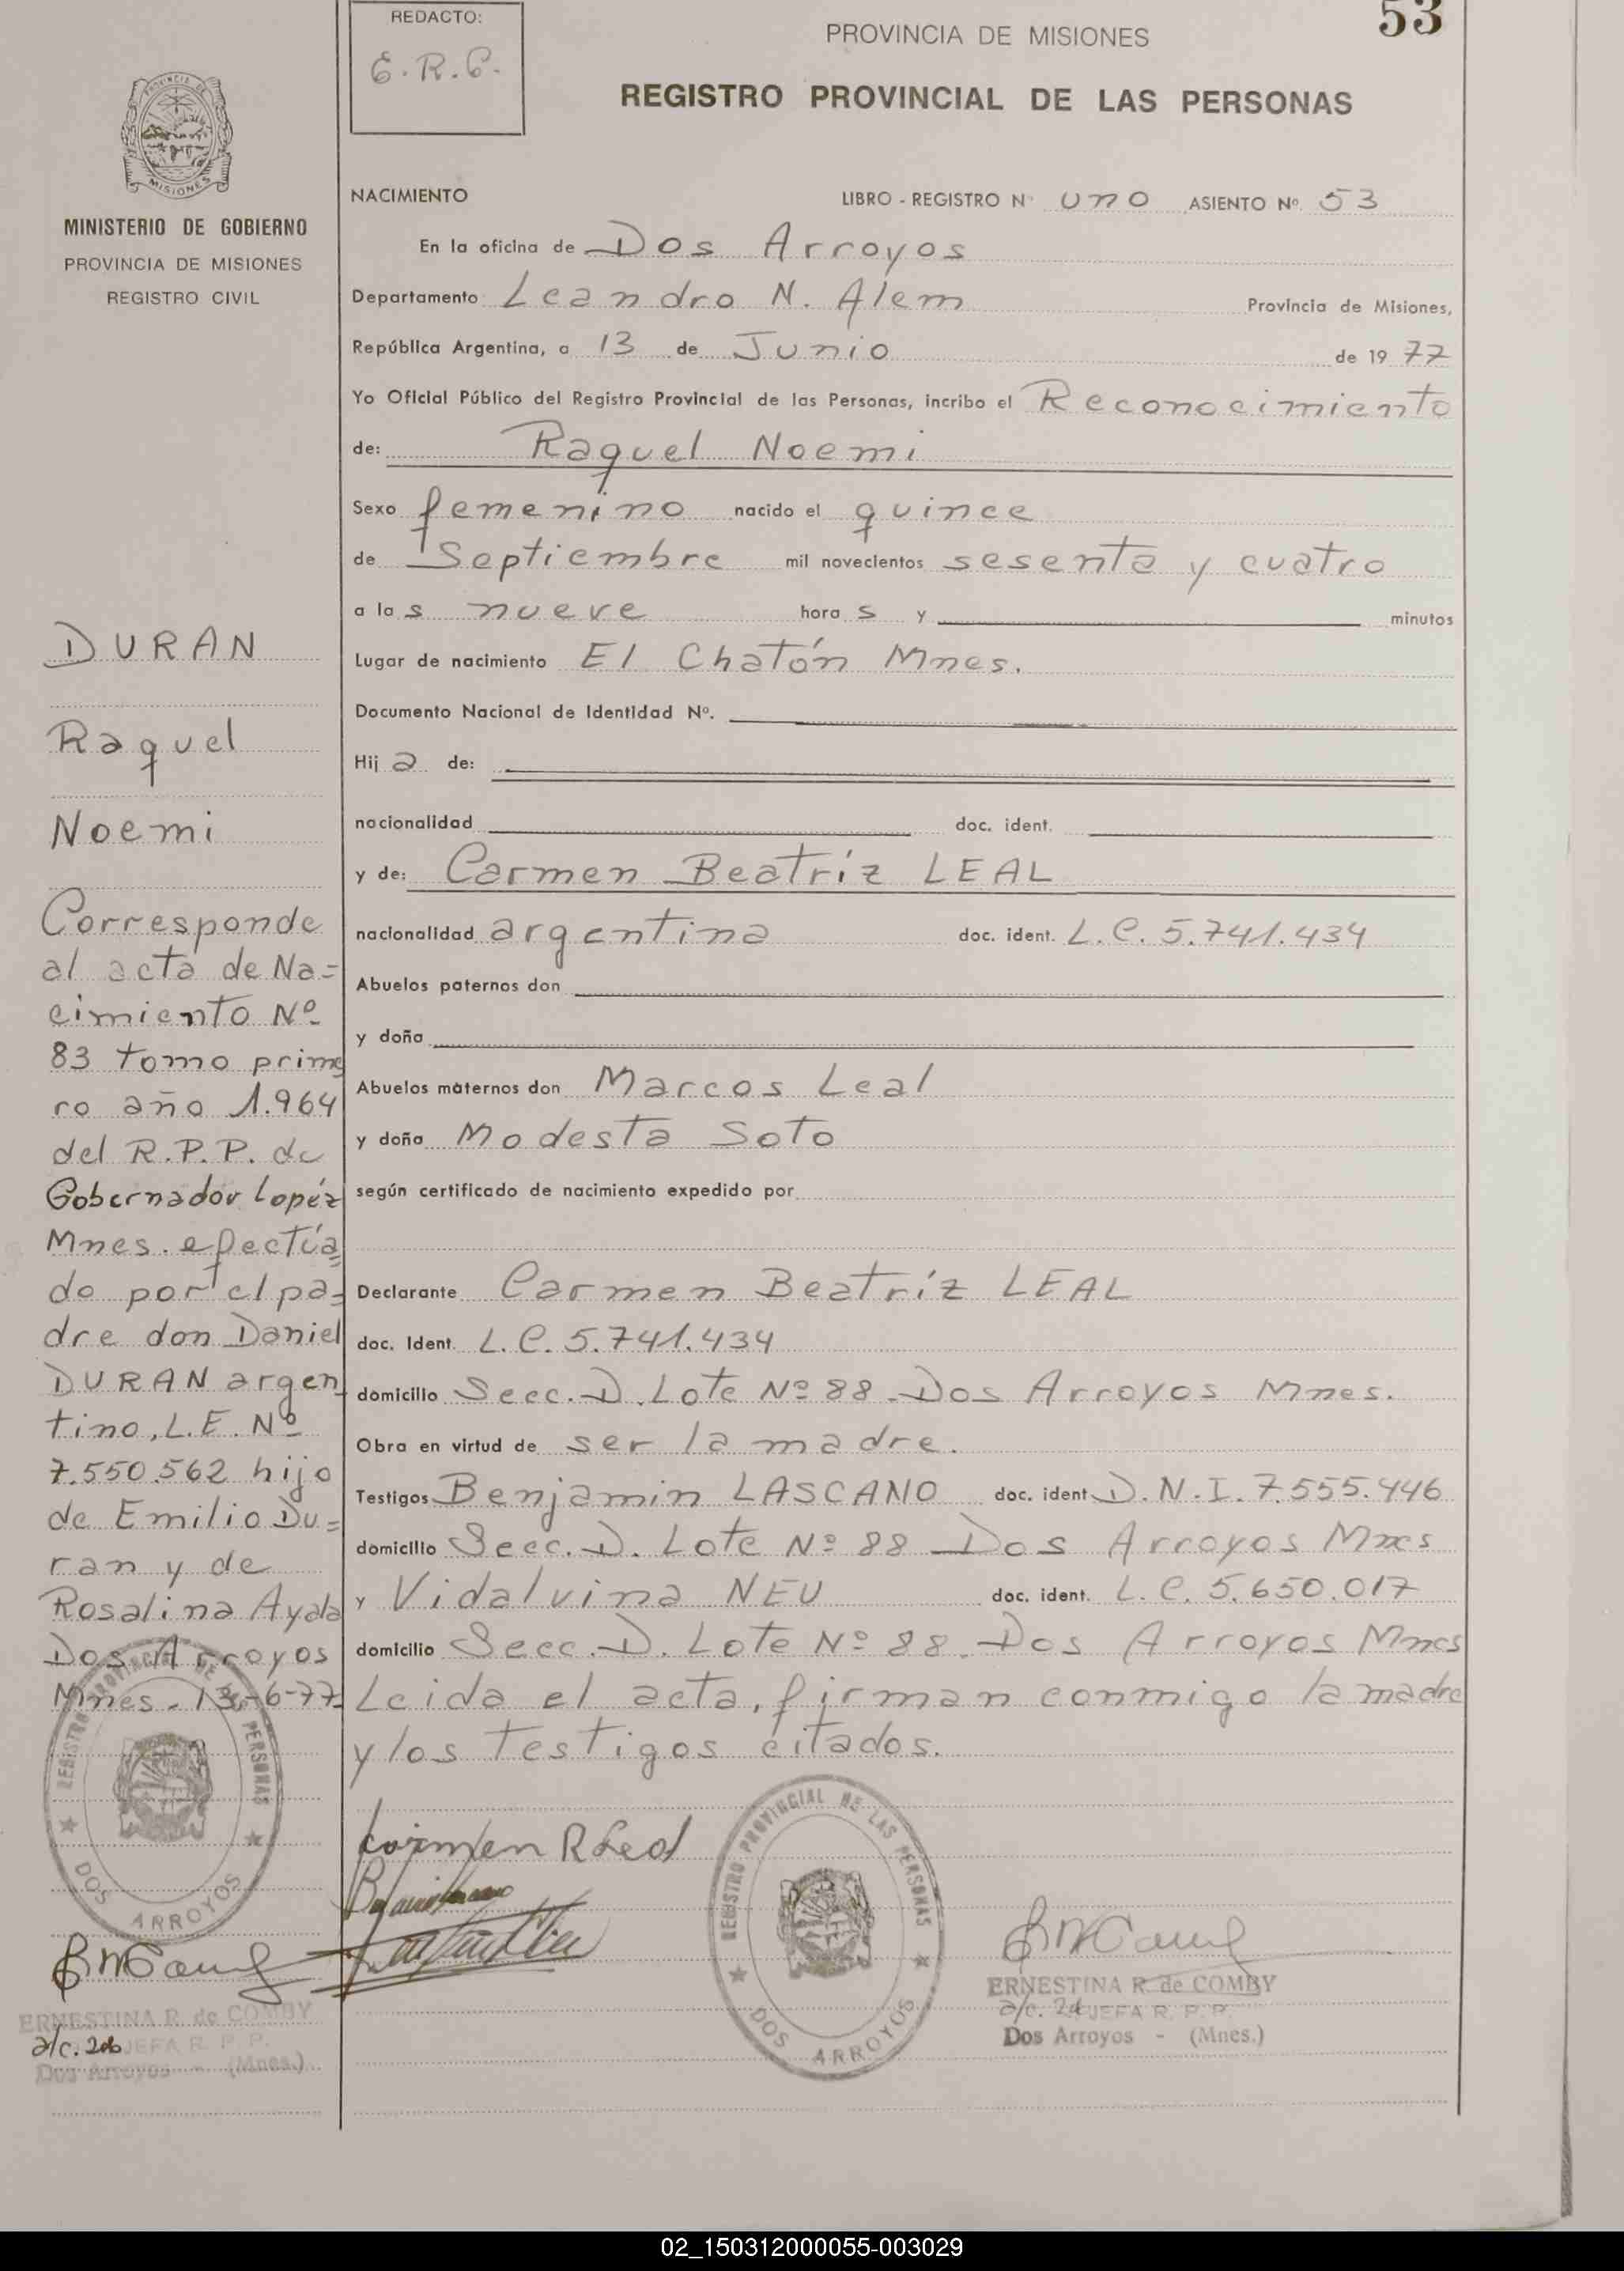 53
REDACTO:
E. R. C.
PROVINCIA DE MISIONES
REGISTRO PROVINCIAL DE LAS PERSONAS
PROVINCIA DE
MISIONES
MINISTERIO DE GOBIERNO
PROVINCIA DE MISIONES
REGISTRO CIVIL
NACIMIENTO
LIBRO - REGISTRO Nº uno ASIENTO Nº. 53
En la oficina de Dos Arroyos
Departamento Leandro N. Alem Provincia de Misiones,
República Argentina, a 13 de Junio de 19 77
Yo Oficial Público del Registro Provincial de las Personas, incribo el Reconocimiento
de: Raquel Noemi
Sexo femenino nacido el quince
de Septiembre mil novecientos sesenta y cuatro
a las nueve horas y minutos
Lugar de nacimiento El Chatón Mnes.
Documento Nacional de Identidad Nº.
Hija de:
nacionalidad doc. ident.
y de: Carmen Beatríz LEAL
nacionalidad argentina doc. ident. L.C. 5.741.434
Abuelos paternos don
y doña
Abuelos maternos don Marcos Leal
y doña Modesta Soto
según certificado de nacimiento expedido por
Declarante Carmen Beatríz LEAL
doc. Ident. L.C. 5.741.434
domicilio Secc. D. Lote Nº 88 - Dos Arroyos Mnes.
Obra en virtud de ser la madre.
Testigos Benjamin LASCANO doc. ident D.N.I. 7.555.446
domicilio Secc. D. Lote Nº 88 Dos Arroyos Mnes
y Vidalvina NEU doc. ident. L.C. 5.650.017
domicilio Secc. D. Lote Nº 88. Dos Arroyos Mnes
Leida el acta, firman conmigo la madre
y los testigos citados.
DURAN
Raquel
Noemi
Corresponde
al acta de Na=
cimiento Nº
83 tomo prime
ro año 1.964
del R.P.P. de
Gobernador Lopéz
Mnes. efectúa=
do por el pa=
dre don Daniel
DURAN argen
tino, L.E. Nº
7.550.562 hijo
de Emilio Du=
ran y de
Rosalina Ayala
Dos Arroyos
Mnes - 13-6-77-
REGISTRO PROVINCIAL DE LAS PERSONAS
DOS ARROYOS
ERNESTINA R. de COMBY
a/c. JEFA R. P. P.
Dos Arroyos - (Mnes.)
REGISTRO PROVINCIAL DE LAS PERSONAS
DOS ARROYOS
ERNESTINA R. de COMBY
a/c. JEFA R. P. P.
Dos Arroyos - (Mnes.)
02_150312000055-003029